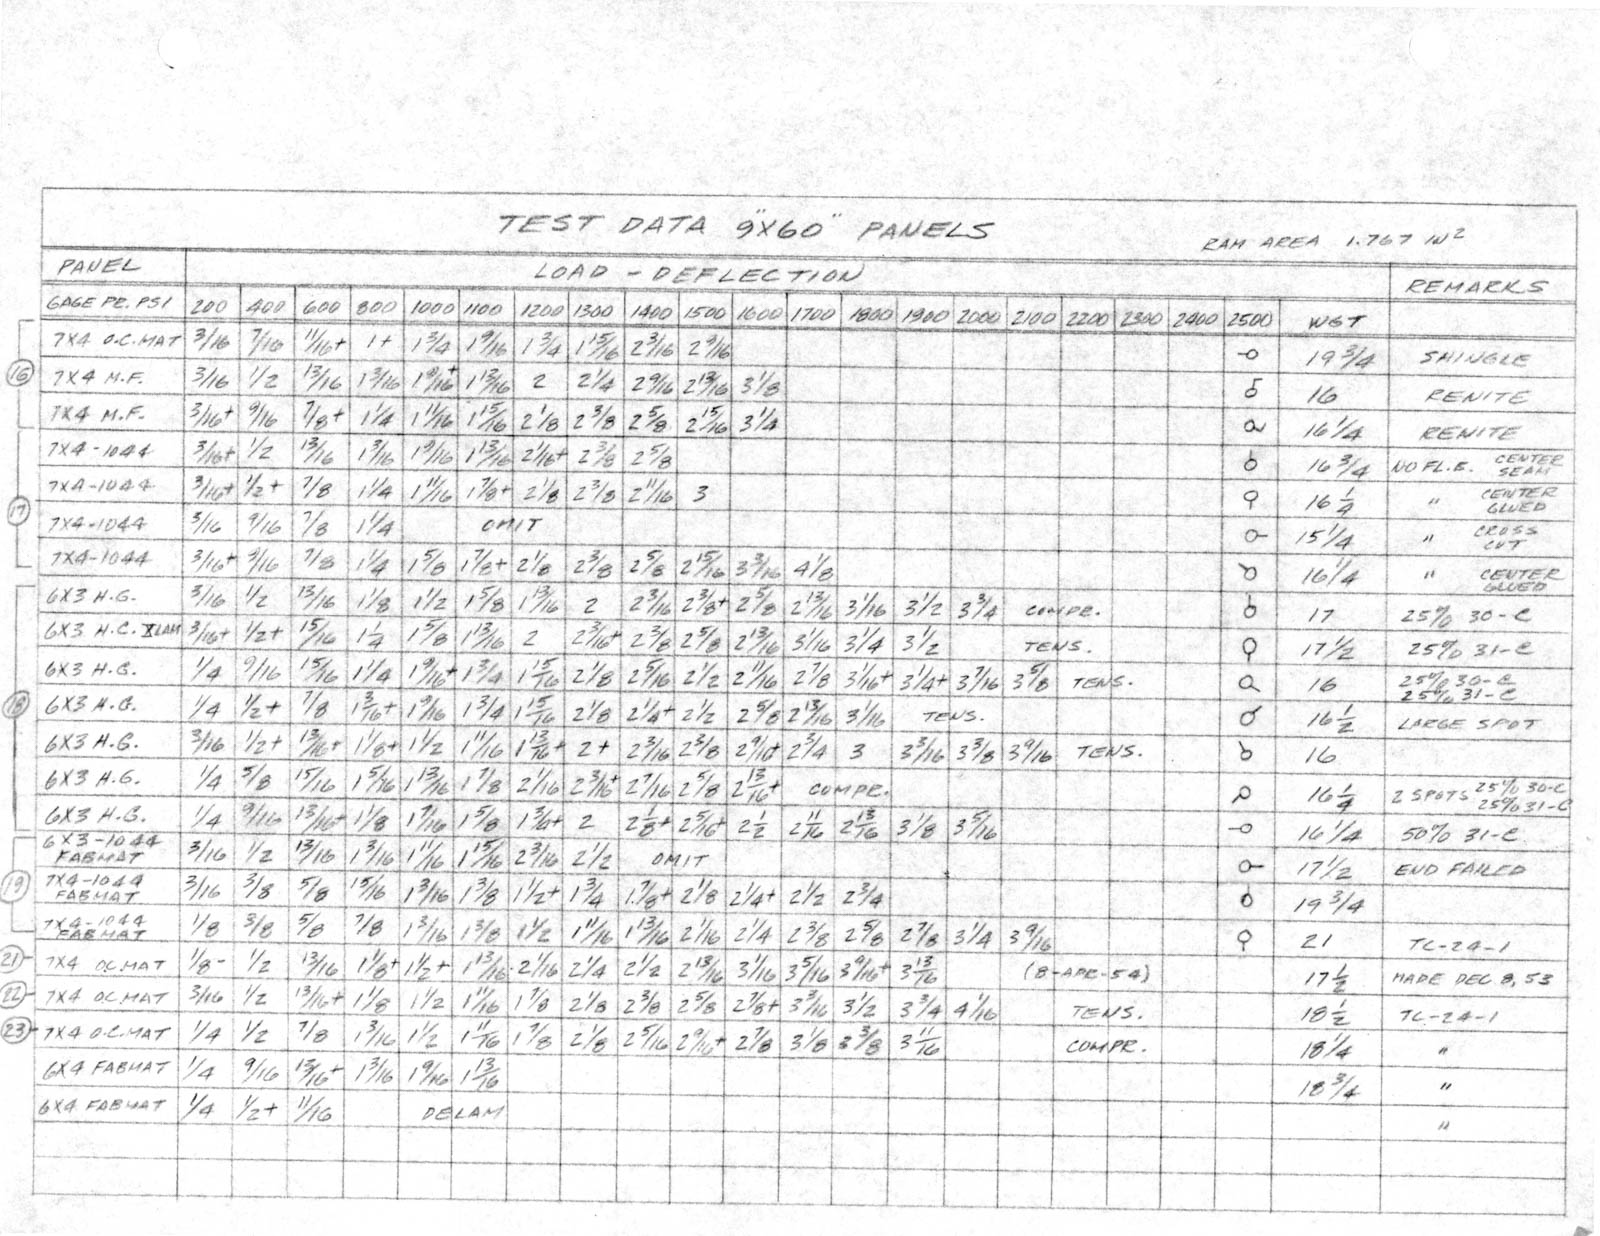 TEST DATA 9"X60" PANELS
RAM AREA 1.767 IN²
PANEL LOAD - DEFLECTION REMARKS
GAGE PR. PSI 200 400 600 800 1000 1100 1200 1300 1400 1500 1600 1700 1800 1900 2000 2100 2200 2300 2400 2500 WGT
7X4 O.C.MAT 3/16 7/16 11/16+ 1+ 1 3/4 1 9/16 1 3/4 1 15/16 2 3/16 2 9/16 19 3/4 SHINGLE
16 7X4 M.F. 3/16 1/2 13/16 1 3/16 1 9/16+ 1 13/16 2 2 1/4 2 9/16 2 13/16 3 1/8 16 RENITE
7X4 M.F. 3/16+ 9/16 7/8+ 1 1/4 1 11/16 1 15/16 2 1/8 2 3/8 2 5/8 2 15/16 3 1/4 16 1/4 RENITE
7X4-1044 3/16+ 1/2 13/16 1 3/16 1 9/16 1 13/16 2 1/16+ 2 3/8 2 5/8 16 3/4 NO FL.E. CENTER SEAM
7X4-1044 3/16+ 1/2+ 7/8 1 1/4 1 11/16 1 7/8+ 2 1/8 2 3/8 2 11/16 3 16 1/4 " CENTER GLUED
17 7X4-1044 3/16 9/16 7/8 1 1/4 OMIT 15 1/4 " CROSS CUT
7X4-1044 3/16+ 9/16 7/8 1 1/4 1 5/8 1 7/8+ 2 1/8 2 3/8 2 5/8 2 15/16 3 3/16 4 1/8 16 1/4 " CENTER GLUED
6X3 H.G. 3/16 1/2 13/16 1 1/8 1 1/2 1 5/8 1 13/16 2 2 3/16 2 3/8+ 2 5/8 2 13/16 3 1/16 3 1/2 3 3/4 COMPR. 17 25% 30-C
6X3 H.G. XLAM 3/16+ 1/2+ 15/16 1 1/4 1 5/8 1 13/16 2 2 3/16+ 2 3/8 2 5/8 2 13/16 3 1/16 3 1/4 3 1/2 TENS. 17 1/2 25% 31-C
6X3 H.G. 1/4 9/16 15/16 1 1/4 1 9/16+ 1 3/4 1 15/16 2 1/8 2 5/16 2 1/2 2 11/16 2 7/8 3 1/16+ 3 1/4+ 3 7/16 3 5/8 TENS. 16 25% 30-C 25% 31-C
18 6X3 H.G. 1/4 1/2+ 7/8 1 3/16+ 1 9/16 1 3/4 1 15/16 2 1/8 2 1/4+ 2 1/2 2 5/8 2 13/16 3 1/16 TENS. 16 1/2 LARGE SPOT
6X3 H.G. 3/16 1/2+ 13/16+ 1 1/8+ 1 1/2 1 11/16 1 13/16+ 2+ 2 3/16 2 3/8 2 9/16+ 2 3/4 3 3 3/16 3 3/8 3 9/16 TENS. 16
6X3 H.G. 1/4 5/8 15/16 1 5/16 1 13/16 1 7/8 2 1/16 2 3/16+ 2 7/16 2 5/8 2 13/16+ COMPR. 16 1/4 2 SPOTS 25% 30-C 25% 31-C
6X3 H.G. 1/4 9/16 13/16+ 1 1/8 1 7/16 1 5/8 1 3/4+ 2 2 1/8+ 2 5/16+ 2 1/2 2 11/16 2 13/16 3 1/8 3 5/16 16 1/4 50% 31-C
6X3-1044 FABMAT 3/16 1/2 13/16 1 3/16 1 11/16 1 15/16 2 3/16 2 1/2 OMIT 17 1/2 END FAILED
19 7X4-1044 FABMAT 3/16 3/8 5/8 15/16 1 3/16 1 3/8 1 1/2+ 1 3/4 1 7/8+ 2 1/8 2 1/4+ 2 1/2 2 3/4 19 3/4
7X4-1044 FABMAT 1/8 3/8 5/8 7/8 1 3/16 1 3/8 1 1/2 1 11/16 1 13/16 2 1/16 2 1/4 2 3/8 2 5/8 2 7/8 3 1/4 3 9/16 21 TC-24-1
21 7X4 OC.MAT 1/8- 1/2 13/16 1 1/8+ 1 1/2+ 1 13/16 2 1/16 2 1/4 2 1/2 2 13/16 3 1/16 3 5/16 3 9/16+ 3 13/16 (8-APR-54) 17 1/2 MADE DEC 8, 53
22 7X4 OC.MAT 3/16 1/2 13/16+ 1 1/8 1 1/2 1 11/16 1 7/8 2 1/8 2 3/8 2 5/8 2 7/8+ 3 3/16 3 1/2 3 3/4 4 1/16 TENS. 18 1/2 TC-24-1
23 7X4 O.C.MAT 1/4 1/2 7/8 1 3/16 1 1/2 1 11/16 1 7/8 2 1/8 2 5/16 2 9/16+ 2 7/8 3 1/8 3 3/8 3 11/16 COMPR. 18 1/4 "
6X4 FABMAT 1/4 9/16 13/16+ 1 3/16 1 9/16 1 13/16 18 3/4 "
6X4 FABMAT 1/4 1/2+ 11/16 DELAM "